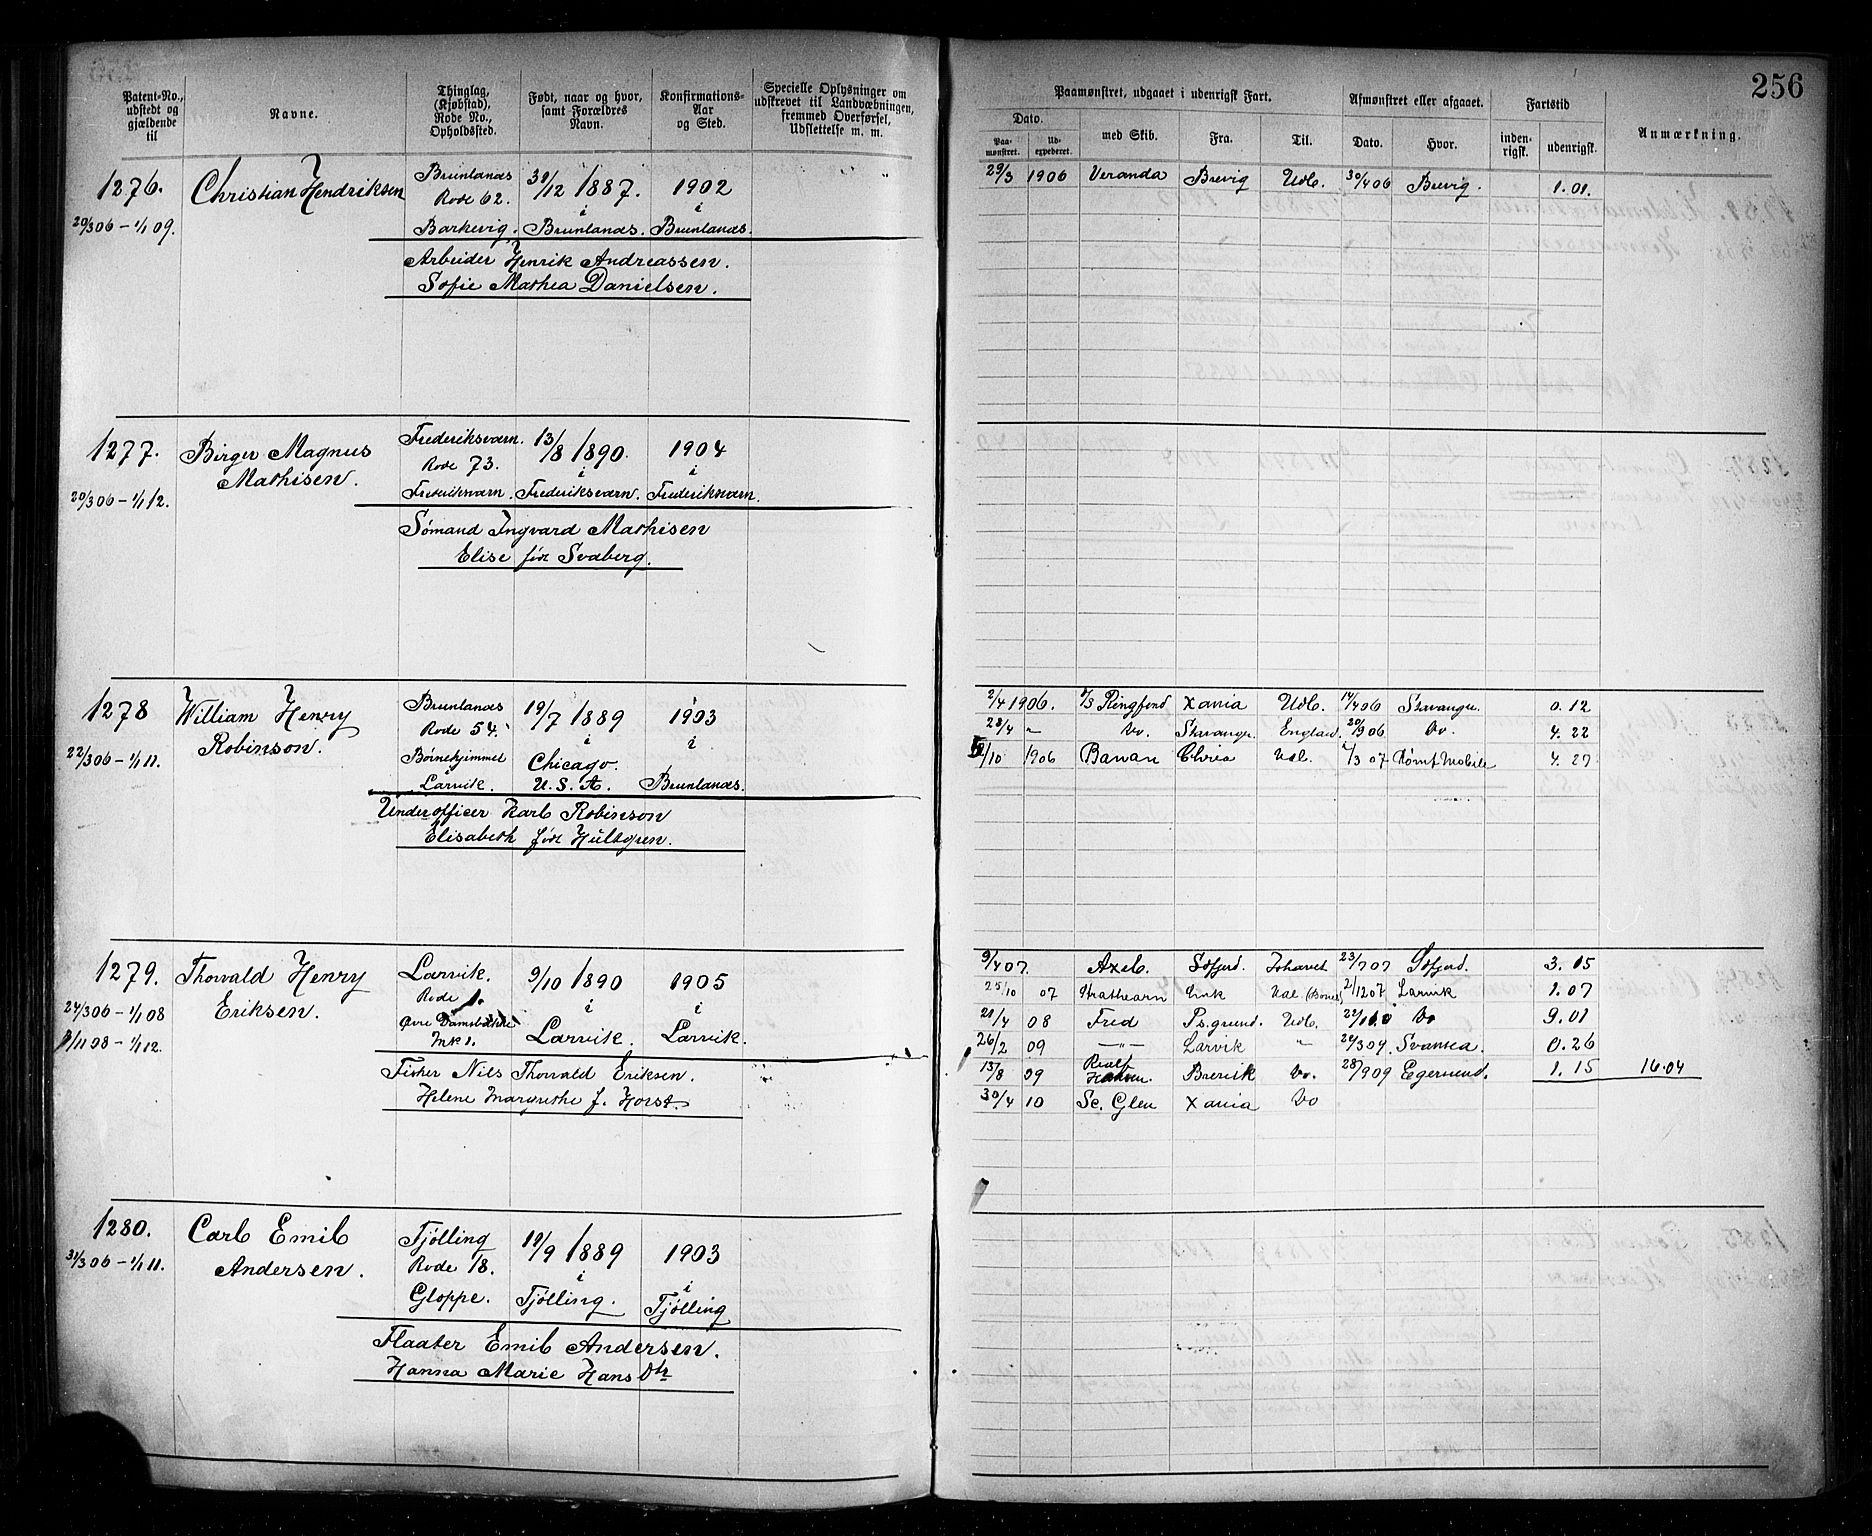 256
Patent-No., udstedt og gjældende til
Navne.
Thinglag, (Kjøbstad), Rode No., Opholdssted.
Født, naar og hvor, samt Forældres Navn.
Konfirmations-Aar og Sted.
Specielle Oplysninger om udskrevet til Landvæbningen, fremmed Overførsel, Udslettelse m. m.
Paamønstret, udgaaet i udenrigsk Fart.
Dato.
Paa-mønstret.
Ud-expederet.
med Skib.
Fra.
Til.
Afmønstret eller afgaaet.
Dato.
Hvor.
Fartstid
inden-rigsk.
udenrigsk.
Anmærkning.
1276. Christian Hendriksen Brunlanæs 31/12 1887. 1902
Rode 62. i i
20/3 06 – 1/1 09. Barkevig. Brunlanæs. Brunlanæs.
Arbeider Henrik Andreassen.
Sofie Mathea Danielsen.
29/3 1906 Veranda Brevig Udl. 30/4 06 Brevig. 1.01.
1277. Birger Magnus Frederiksværn. 13/8 1890. 1904
Mathisen. Rode 73. i i
20/3 06 – 1/1 12. Frederiksværn. Frederiksværn. Frederiksværn.
Sømand Ingvard Mathisen
Elise født Svaberg.
1278 William Henry Brunlanæs 19/7 1889 1903
Robinson. Rode 54. i i
22/3 06 – 1/1 11. Børnehjemmet Chicago.
Larvik. U. S. A. Brunlanæs.
Underofficer Karl Robinson
Elisabeth født Hultgren.
2/4 1906. Ringfond Xania Udl. 14/4 06 Stavanger 0.12
28/4 – Do. Stavanger England. 20/9 06 Do. 4.22
/10 1906 Banan Chria Udl. /3 07 Rømt Mobile 4.27
1279. Thorvald Henry Larvik. 9/10 1890 1905
Eriksen. Rode 1. i i
24/3 06 – 1/1 08 Øvre Damsbakke Larvik. Larvik.
/11 08 – 1/1 12. Mk 1.
Fisker Nils Thorvald Eriksen.
Helene Margrethe f. Horst.
9/4 07. Axel. Sofjord. 23/7 07 Sofjord. 3.15
25/10 07 Strathearn Udl. 2/12 07 Larvik 1.07
21/4 08 Fred Ps.grund. Udl. Do 9.01
26/2 09 –"– Larvik " 24/3 09. Svansea. 0.26
13/8 09 Brevik Do. 28/9 09 Egersund. 1.15 16.04
30/4 10 Sc. Glen Xania Do
1280. Carl Emil Tjølling 19/9 1889 1903
Andersen. Rode 18. i i
31/3 06 – 1/1 11. Gloppe. Tjølling. Tjølling
Flaater Emil Andersen.
Hanna Marie Hans Dtr